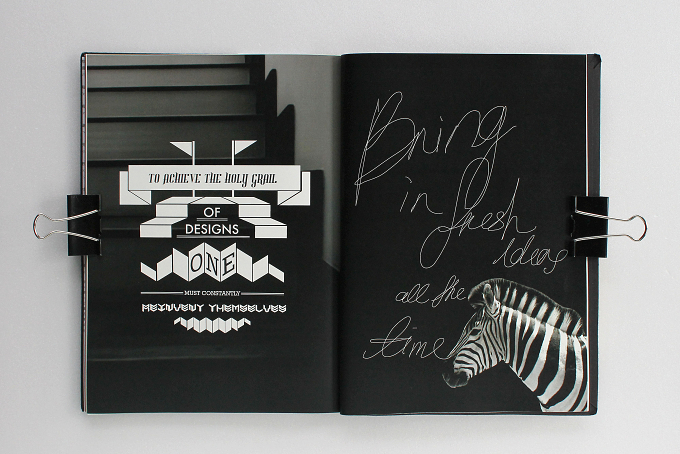 TO ACHIEVE THE HOLY GRAIL
OF
DESIGNS
ONE
MUST CONSTANTLY
REYNVENT THEMSELVES
Bring
in fresh
Ideas
all the
time